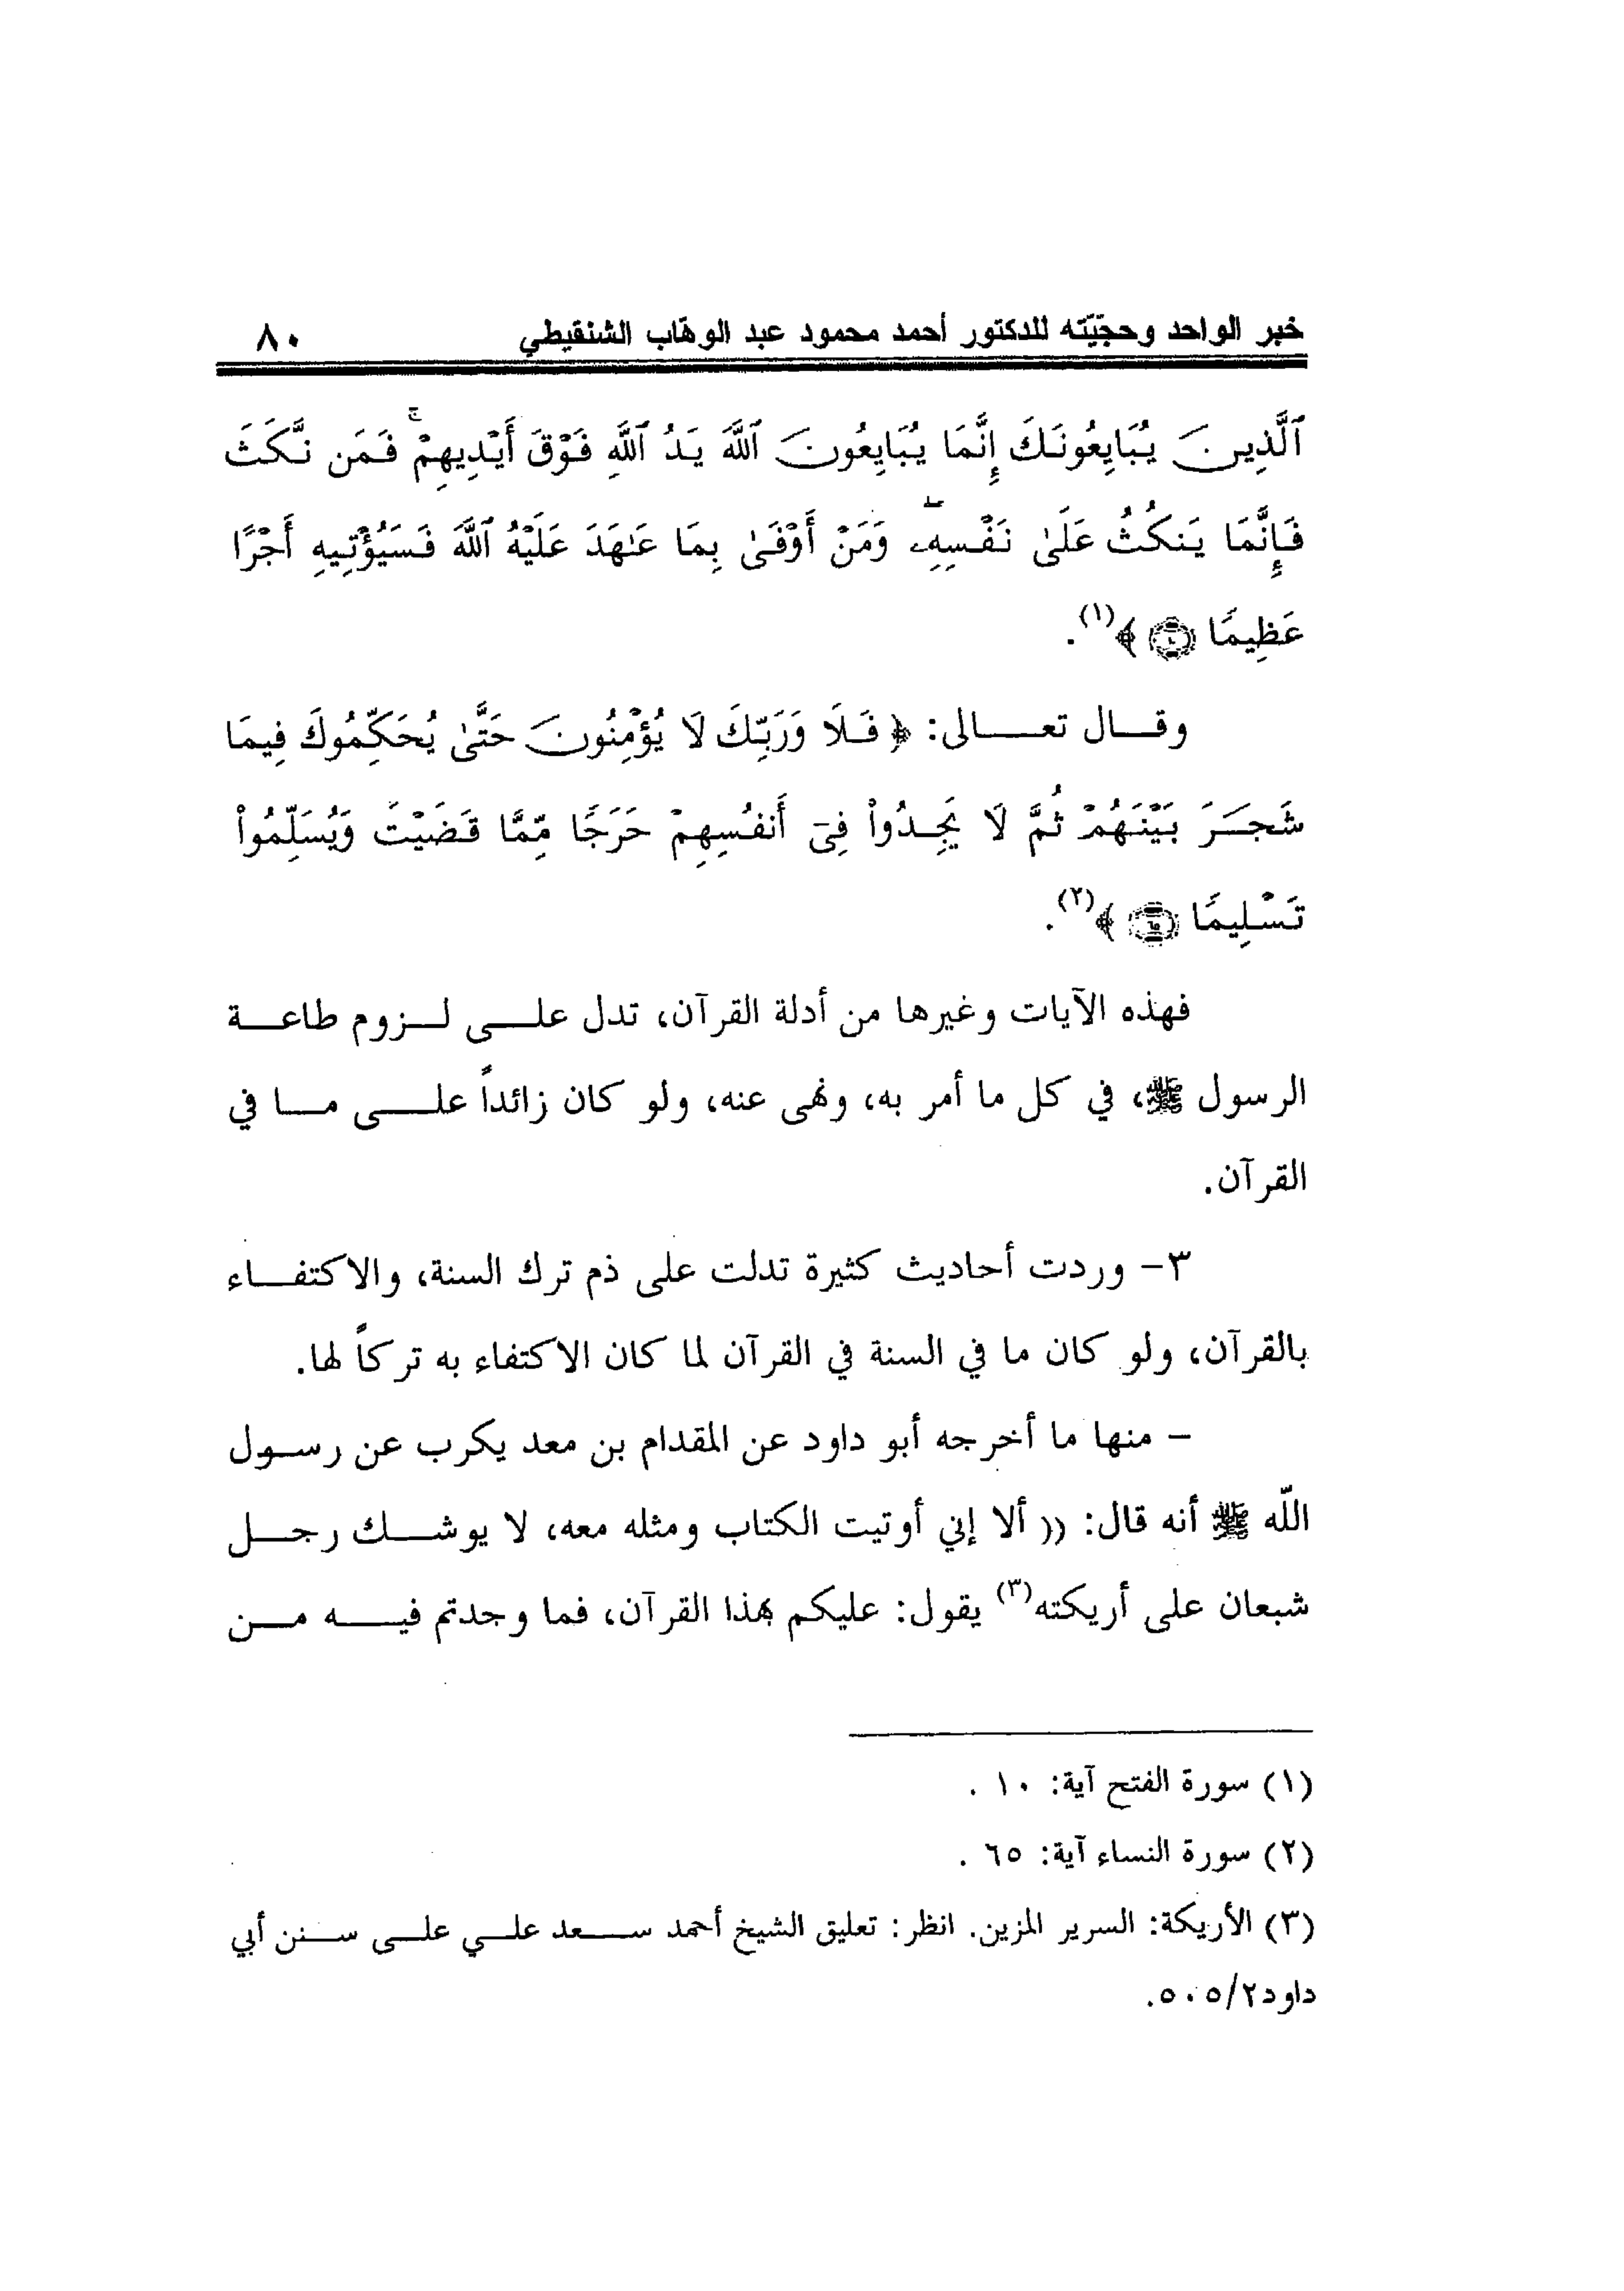 خبر الواحد وحجّيّته للدكتور أحمد محمود عبد الوهّاب الشنقيطي ٨٠
ٱلَّذِينَ يُبَايِعُونَكَ إِنَّمَا يُبَايِعُونَ ٱللَّهَ يَدُ ٱللَّهِ فَوْقَ أَيْدِيهِمْ ۚ فَمَن نَّكَثَ
فَإِنَّمَا يَنكُثُ عَلَىٰ نَفْسِهِۦ ۖ وَمَنْ أَوْفَىٰ بِمَا عَٰهَدَ عَلَيْهُ ٱللَّهَ فَسَيُؤْتِيهِ أَجْرًا
عَظِيمًا ١٠ ﴾(١).
وقال تعالى: ﴿ فَلَا وَرَبِّكَ لَا يُؤْمِنُونَ حَتَّىٰ يُحَكِّمُوكَ فِيمَا
شَجَرَ بَيْنَهُمْ ثُمَّ لَا يَجِدُوا۟ فِىٓ أَنفُسِهِمْ حَرَجًا مِّمَّا قَضَيْتَ وَيُسَلِّمُوا۟
تَسْلِيمًا ٦٥ ﴾(٢).
فهذه الآيات وغيرها من أدلة القرآن، تدل على لزوم طاعة
الرسول ﷺ، في كل ما أمر به، ونهى عنه، ولو كان زائداً على ما في
القرآن.
٣- وردت أحاديث كثيرة تدلت على ذم ترك السنة، والاكتفاء
بالقرآن، ولو كان ما في السنة في القرآن لما كان الاكتفاء به تركاً لها.
- منها ما أخرجه أبو داود عن المقدام بن معد يكرب عن رسول
اللّه ﷺ أنه قال: (( ألا إني أوتيت الكتاب ومثله معه، لا يوشك رجل
شبعان على أريكته(٣) يقول: عليكم بهذا القرآن، فما وجدتم فيه من
(١) سورة الفتح آية: ١٠ .
(٢) سورة النساء آية: ٦٥ .
(٣) الأريكة: السرير المزين. انظر: تعليق الشيخ أحمد سعد علي على سنن أبي
داود٢/٥٠٥.